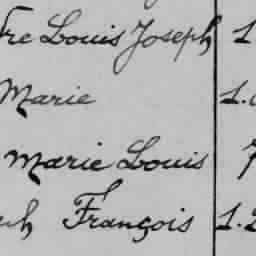 Louis Joseph 1
Marie 1.
Marie Louis 7
François 1.2